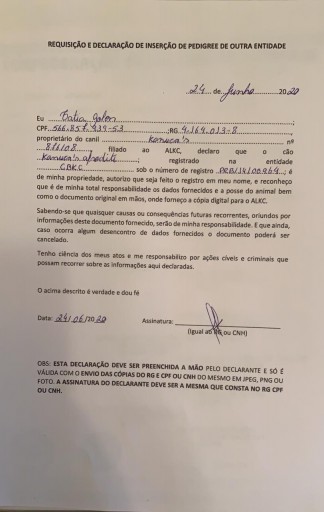 REQUISIÇÃO E DECLARAÇÃO DE INSERÇÃO DE PEDIGREE DE OUTRA ENTIDADE
24 de Junho 2020
Eu
CPF. 566.857.439-53 ;RG. 4.164.013-8
proprietário do canil Kanuca's nº
816/08 filiado ao ALKC, declaro que o cão
Kanuca's afrodite registrado na entidade
CBKC sob o número de registro ; é
de minha propriedade, autorizo que seja feito o registro em meu nome, e reconheço
que é de minha total responsabilidade os dados fornecidos e a posse do animal bem
como o documento original em mãos, onde forneço a cópia digital para o ALKC.
Sabendo-se que quaisquer causas ou consequências futuras recorrentes, oriundos por
informações deste documento fornecido, serão de minha responsabilidade. E que ainda,
caso ocorra algum desencontro de dados fornecidos o documento poderá ser
cancelado.
Tenho ciência dos meus atos e me responsabilizo por ações cíveis e criminais que
possam recorrer sobre as informações aqui declaradas.
O acima descrito é verdade e dou fé
Data: 24/06/2020 Assinatura:
(Igual ao RG ou CNH)
OBS: ESTA DECLARAÇÃO DEVE SER PREENCHIDA A MÃO PELO DECLARANTE E SÓ É
VÁLIDA COM O ENVIO DAS CÓPIAS DO RG E CPF OU CNH DO MESMO EM JPEG, PNG OU
FOTO. A ASSINATURA DO DECLARANTE DEVE SER A MESMA QUE CONSTA NO RG CPF
OU CNH.